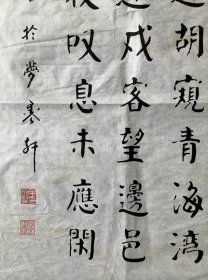 胡窺青海湾
戍客望邊邑
叹息未應閑
於夢塞軒